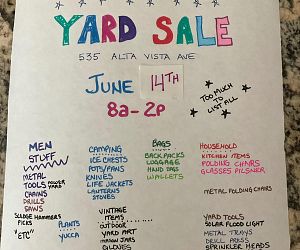 YARD SALE
535 ALTA VISTA AVE
JUNE 14TH
8a-2p
TOO MUCH
TO
LIST ALL
MEN
STUFF
METAL
TOOLS
CHAINS
DRILLS
SAWS
POWER YARD
SLEDGE HAMMERS
PICKS
"ETC"
PLANTS
YUCCA
CAMPING
ICE CHESTS
POTS/PANS
KNIVES
LIFE JACKETS
LANTERNS
STOVES
VINTAGE
ITEMS
OUTDOOR
YARD ART
MASON JARS
GLOVES
BAGS
BACKPACKS
LUGGAGE
HAND BAGS
WALLETS
HOUSEHOLD
KITCHEN ITEMS
FOLDING CHAIRS
GLASSES PILSNER
METAL FOLDING CHAIRS
YARD TOOLS
SOLAR FLOOD LIGHT
METAL TRAYS
DRILL AREAS
SPRINKLER HEADS